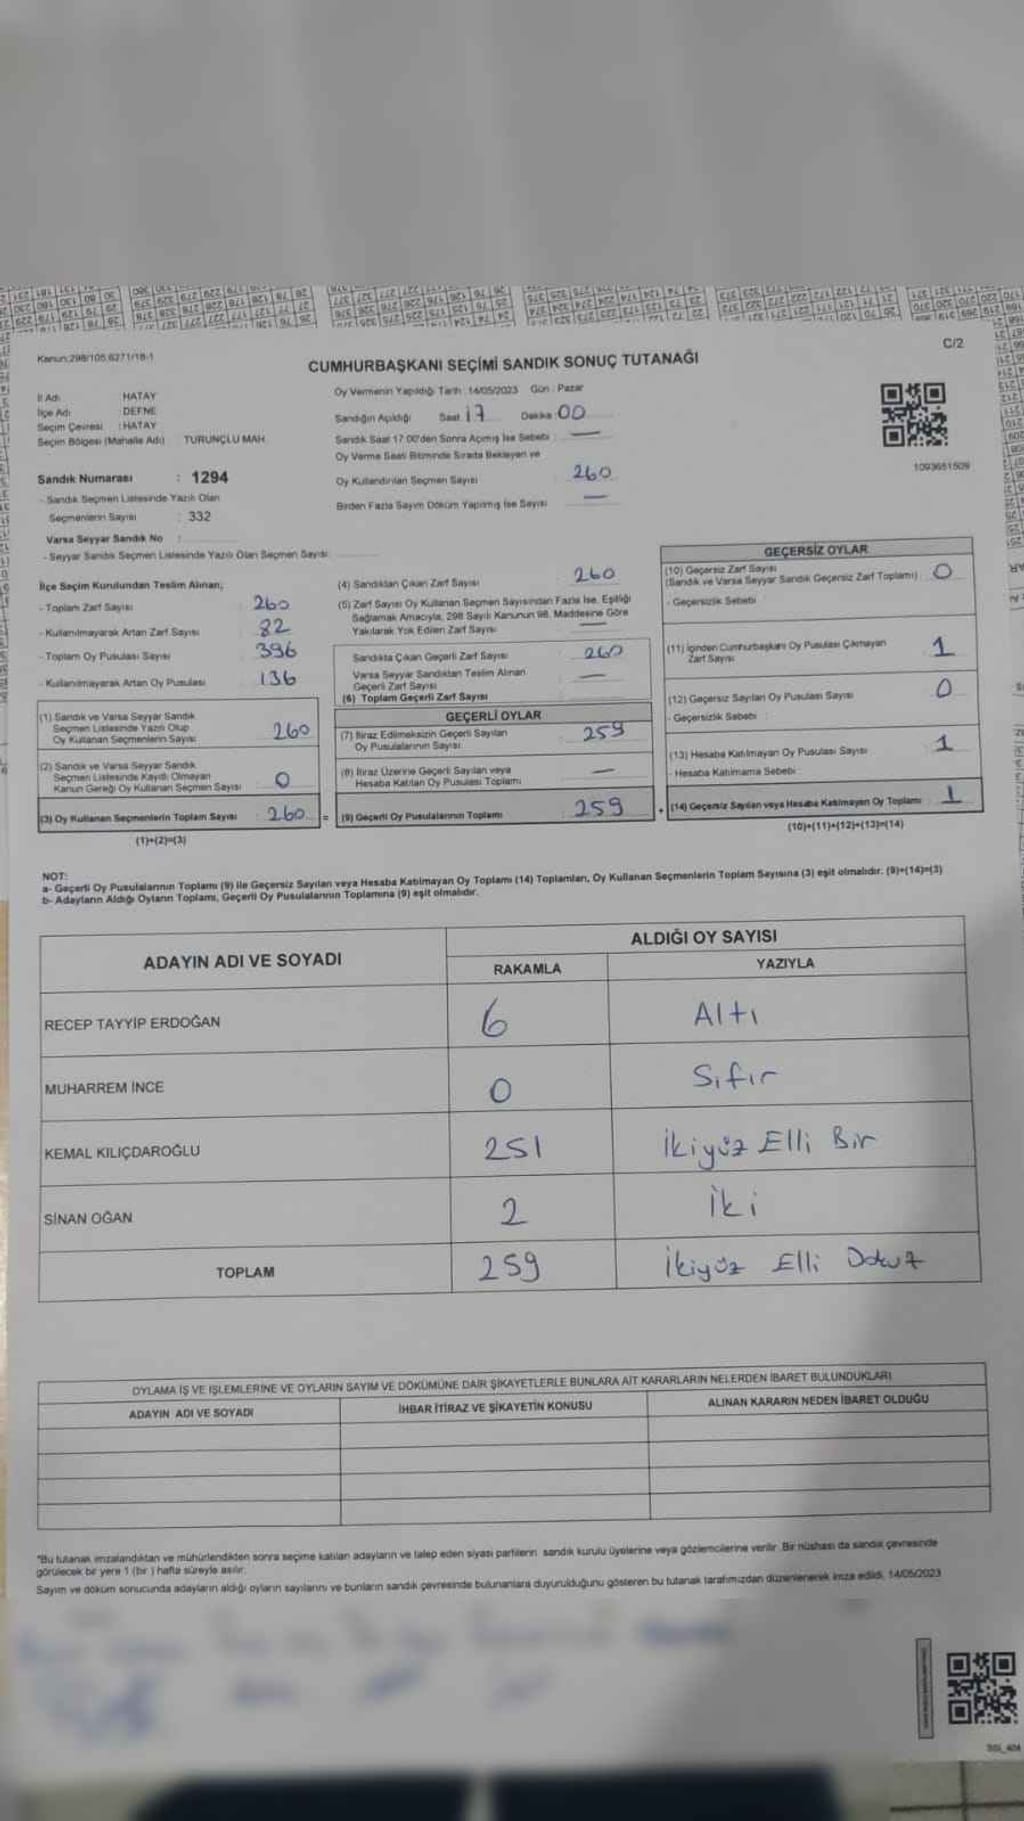 Kanun:298/105,6271/18-1
C/2
CUMHURBAŞKANI SEÇİMİ SANDIK SONUÇ TUTANAĞI
İl Adı HATAY
İlçe Adı : DEFNE
Seçim Çevresi : HATAY
Seçim Bölgesi (Mahalle Adı) TURUNÇLU MAH.
Oy Vermenin Yapıldığı Tarih : 14/05/2023 Gün : Pazar
Sandığın Açıldığı Saat 17 Dakika 00
Sandık Saat 17.00'den Sonra Açılmış İse Sebebi : —
Oy Verme Saati Bitiminde Sırada Bekleyen ve
Oy Kullandırılan Seçmen Sayısı 260
Birden Fazla Sayım Döküm Yapılmış İse Sayısı —
1093651509
Sandık Numarası : 1294
- Sandık Seçmen Listesinde Yazılı Olan
Seçmenlerin Sayısı : 332
Varsa Seyyar Sandık No :
- Seyyar Sandık Seçmen Listesinde Yazılı Olan Seçmen Sayısı
İlçe Seçim Kurulundan Teslim Alınan;
- Toplam Zarf Sayısı 260
- Kullanılmayarak Artan Zarf Sayısı 82
- Toplam Oy Pusulası Sayısı 396
- Kullanılmayarak Artan Oy Pusulası 136
(1) Sandık ve Varsa Seyyar Sandık
Seçmen Listesinde Yazılı Olup
Oy Kullanan Seçmenlerin Sayısı 260
(2) Sandık ve Varsa Seyyar Sandık
Seçmen Listesinde Kayıtlı Olmayan
Kanun Gereği Oy Kullanan Seçmen Sayısı 0
(3) Oy Kullanan Seçmenlerin Toplam Sayısı : 260
(1)+(2)=(3)
(4) Sandıktan Çıkan Zarf Sayısı 260
(5) Zarf Sayısı Oy Kullanan Seçmen Sayısından Fazla İse, Eşitliği
Sağlamak Amacıyla, 298 Sayılı Kanunun 98. Maddesine Göre
Yakılarak Yok Edilen Zarf Sayısı —
Sandıkta Çıkan Geçerli Zarf Sayısı 260
Varsa Seyyar Sandıktan Teslim Alınan
Geçerli Zarf Sayısı —
(6) Toplam Geçerli Zarf Sayısı
GEÇERLİ OYLAR
(7) İtiraz Edilmeksizin Geçerli Sayılan
Oy Pusulalarının Sayısı 259
(8) İtiraz Üzerine Geçerli Sayılan veya
Hesaba Katılan Oy Pusulası Toplamı —
= (9) Geçerli Oy Pusulalarının Toplamı 259
GEÇERSİZ OYLAR
(10) Geçersiz Zarf Sayısı
(Sandık ve Varsa Seyyar Sandık Geçersiz Zarf Toplamı) 0
- Geçersizlik Sebebi
(11) İçinden Cumhurbaşkanı Oy Pusulası Çıkmayan
Zarf Sayısı 1
(12) Geçersiz Sayılan Oy Pusulası Sayısı 0
- Geçersizlik Sebebi :
(13) Hesaba Katılmayan Oy Pusulası Sayısı 1
- Hesaba Katılmama Sebebi :
+ (14) Geçersiz Sayılan veya Hesaba Katılmayan Oy Toplamı 1
(10)+(11)+(12)+(13)=(14)
NOT:
a- Geçerli Oy Pusulalarının Toplamı (9) ile Geçersiz Sayılan veya Hesaba Katılmayan Oy Toplamı (14) Toplamları, Oy Kullanan Seçmenlerin Toplam Sayısına (3) eşit olmalıdır. (9)+(14)=(3)
b- Adayların Aldığı Oyların Toplamı, Geçerli Oy Pusulalarının Toplamına (9) eşit olmalıdır.
ADAYIN ADI VE SOYADI
ALDIĞI OY SAYISI
RAKAMLA YAZIYLA
RECEP TAYYİP ERDOĞAN 6 Altı
MUHARREM İNCE 0 Sıfır
KEMAL KILIÇDAROĞLU 251 İkiyüz Elli Bir
SİNAN OĞAN 2 İki
TOPLAM 259 İkiyüz Elli Dokuz
OYLAMA İŞ VE İŞLEMLERİNE VE OYLARIN SAYIM VE DÖKÜMÜNE DAİR ŞİKAYETLERLE BUNLARA AİT KARARLARIN NELERDEN İBARET BULUNDUKLARI
ADAYIN ADI VE SOYADI İHBAR İTİRAZ VE ŞİKAYETİN KONUSU ALINAN KARARIN NEDEN İBARET OLDUĞU
"Bu tutanak imzalandıktan ve mühürlendikten sonra seçime katılan adayların ve talep eden siyasi partilerin sandık kurulu üyelerine veya gözlemcilerine verilir. Bir nüshası da sandık çevresinde
görülecek bir yere 1 (bir ) hafta süreyle asılır.
Sayım ve döküm sonucunda adayların aldığı oyların sayılarını ve bunların sandık çevresinde bulunanlara duyurulduğunu gösteren bu tutanak tarafımızdan düzenlenerek imza edildi. 14/05/2023